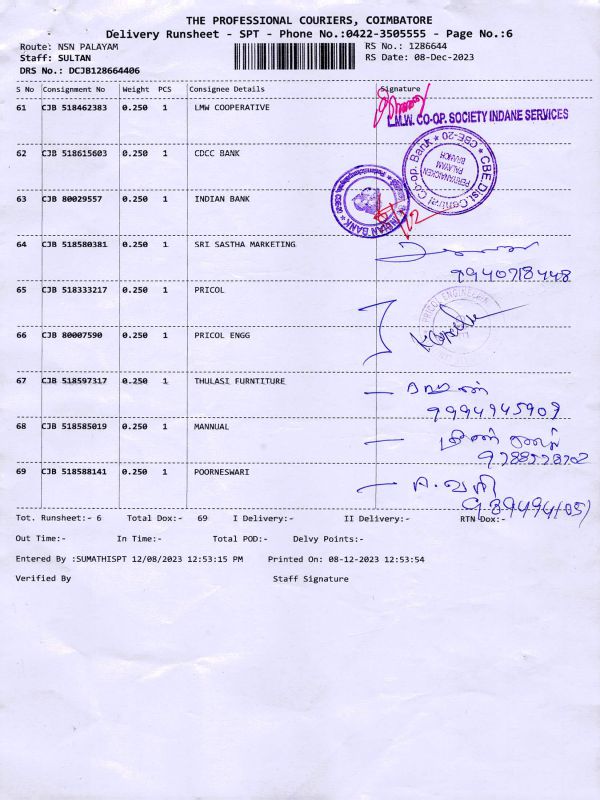 THE PROFESSIONAL COURIERS, COIMBATORE
Delivery Runsheet - SPT - Phone No.:0422-3505555 - Page No.:6
Route: NSN PALAYAM RS No.: 1286644
Staff: SULTAN RS Date: 08-Dec-2023
DRS No.: DCJB128664406
S No Consignment No Weight PCS Consignee Details Signature
61 CJB 518462383 0.250 1 LMW COOPERATIVE
L.M.W. CO-OP. SOCIETY INDANE SERVICES
62 CJB 518615603 0.250 1 CDCC BANK
CBE Dist Central Co-op. Bank CBE-20
PERIYANAICKEN
PALAYAM
BRANCH
63 CJB 80029557 0.250 1 INDIAN BANK
INDIAN BANK
64 CJB 518580381 0.250 1 SRI SASTHA MARKETING
9940718448
65 CJB 518333217 0.250 1 PRICOL
66 CJB 80007590 0.250 1 PRICOL ENGG
67 CJB 518597317 0.250 1 THULASI FURNTITURE
9994945909
68 CJB 518585019 0.250 1 MANNUAL
69 CJB 518588141 0.250 1 POORNESWARI
Tot. Runsheet:- 6 Total Dox:- 69 I Delivery:- II Delivery:- RTN Dox:-
Out Time:- In Time:- Total POD:- Delvy Points:-
Entered By :SUMATHISPT 12/08/2023 12:53:15 PM Printed On: 08-12-2023 12:53:54
Verified By Staff Signature